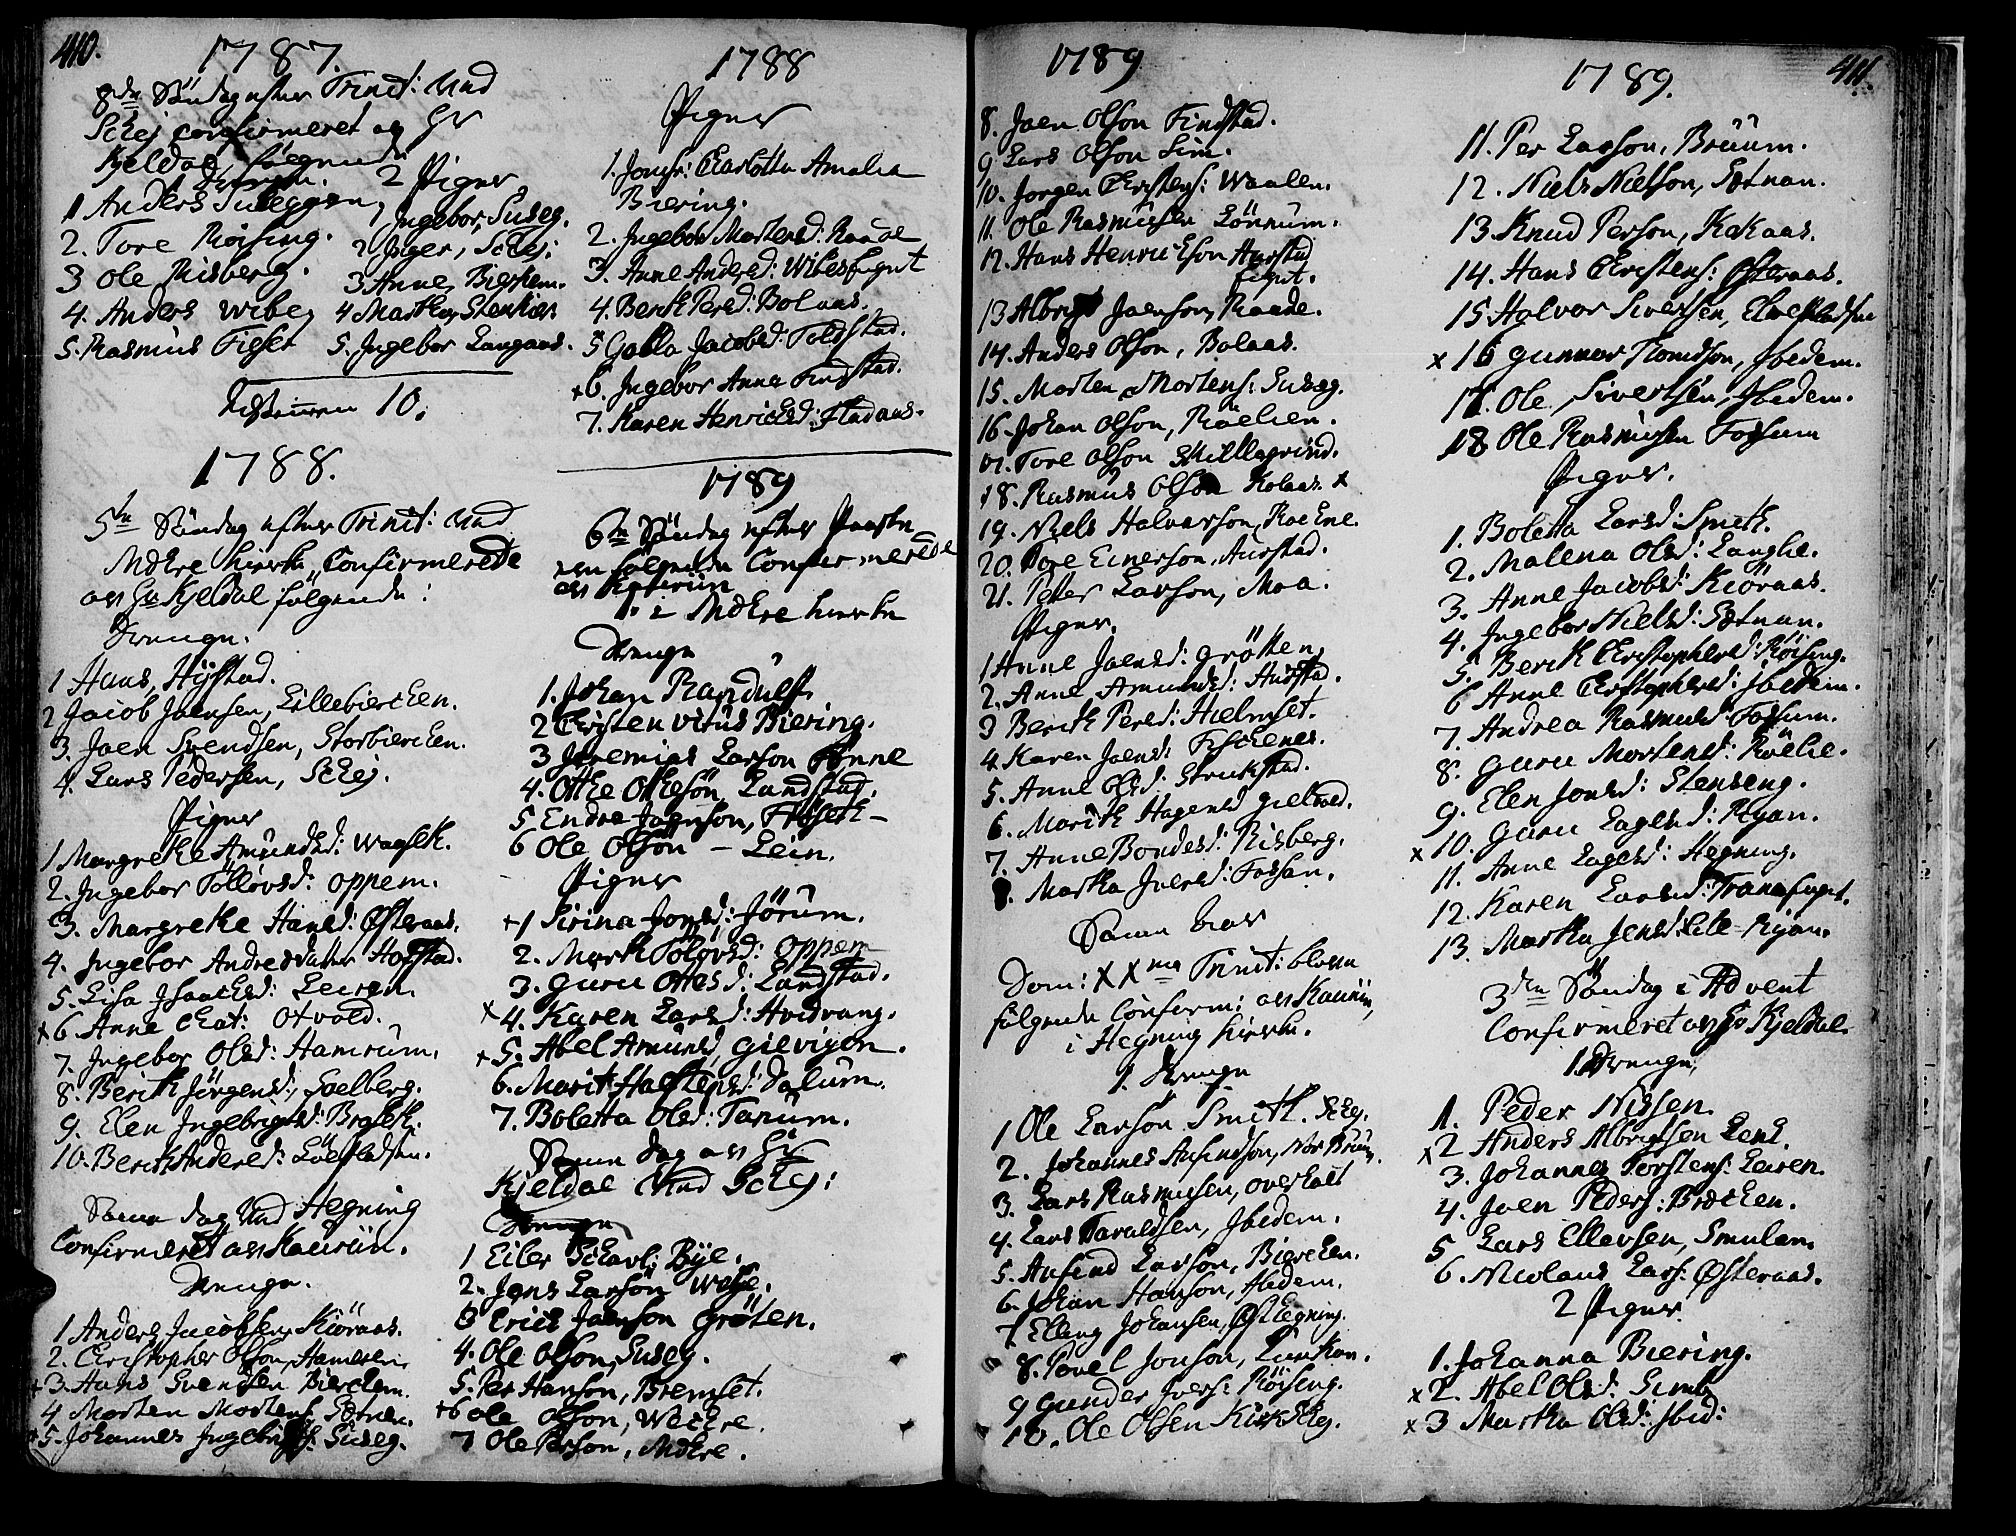 410.
1787.
8de Søndag efter Trinit: ved
Schej confirmeret og Hr
Kjeldal følgende
Drenge.
1 Anders Suseggen,
2. Tore Røising.
3 Ole Risberg.
4. Anders Wibe,
5. Rasmus Figset
2 Piger
1 Ingebor, Suseg.
2 Inger, Schej:
3 Anne, Bierkem.
4 Martha, Stenkier
5. Ingebor Langaas.
10.
1788.
5te Søndag efter Trinit: ved
Mære kirke Confirmerede
av Hr Kjeldal følgende:
Drenge.
1 Hans, Hÿstad.
2 Jacob Jaensen, Lillebierchen.
3. Jaen Svendsen, Storbierchen.
4. Lars Pedersen, Schej.
Piger
1 Margrethe Amundsd: Wagleth.
2. Ingebor Tollovsd: Oppem.
3. Margrethe Hansd: Østeraas.
4. Ingebor Andersdatter Hofstad.
5. Lisa Isaachsd: Leiren.
x 6 Anne Chat: Otvold.
7. Ingebor Olsd: Hamrum.
8. Berith Jörgensd: Soelberg.
9. Elen Ingebrigtsd:
10. Berith Andersd:
Samme dag ved Hegning
Confirmeret av Kaurin.
Drenge.
1 Anders Jacobsen, Kiöraas.
2. Christopher Olson, Hamrem.
+ 3. Hans Svendsen Bierchem.
4 Morten Mortens: Sætnan.
+ 5. Johannes Ingebrigts: Suseg.
1788
Piger
1. Jomfr: Charlotta Amalia
Biering.
2. Ingebor Mortensd: Raade
3. Anne Andersd: Wibesfagnt
4. Berith Persd: Bolaas.
5 Golla Jacobsd: Foldstad.
+ 6. Ingebor Anna Findstad.
7. Karen Henrichsd: Fladaas.
1789
6te Søndag efter Paaske
ere følgende Confirmerede
av Kaurin
i Mære kirke
Drenge
1. Johan Randulff.
2 Christen Vitus Biering.
3 Jeremias Larson Tønne
4. Otthe Otthesön, Landstad.
5 Endre Joenson, Fröseth
6 Ole Olsön – Lein.
Piger
+ 1 Sirina Jonsd: Jörum.
2. Marith Tolovsd: Oppem
3. Guru Ottesd: Landstad.
x 4. Karen Larsd: Hvidvang.
+ 5. Abel Amunsd, Gievigen.
6. Marit Halstensd: Dalum.
7. Boletta Olsd: Tanum.
Samme dag av Hr
Kjeldal ved Schej:
Drenge
1 Eiler Schavl; Bÿe.
2. Jens Larsön Wagle.
3 Erich Jaenson Gröten.
4. Ole Olson, Suseg.
5. Per Hanson, Bremset.
+ 6 Ole Olson, Wechre.
7 Ole Person, Mære.
1789
8. Jaen Olson Findstad.
9 Lars Olson Sim.
10. Jorgen Christens: Waalen.
11. Ole Rasmusen Lönnum.
12. Hans Henrichson Hustad
fagnt.
13 Albrigt Jaenson, Raade.
14. Anders Olson, Bolaas.
15. Morten Mortens: Suseg.
16. Johan Olson, Röelien.
17. Tore Olson Skillegrind.
18. Rasmus Olson Kolaas. x
19. Niels Halvarson,
20. Tore Einerson, Hustad.
21. Peter Larson, Moa.
Piger.
1 Anne Jaensd: Grötten.
2. Anne Amundsd: Hustad.
3 Berith Persd: Hielmset.
4 Karen Jaensd:
5. Anne Olsd: Strukstad.
6. Marith Hagensd Gielvold.
7. Anne Bondesd: Risberg.
8. Martha Iversd: Fossan.
Samme Aar
Dom: XXma Trinit: bleve
følgende Confirm: av Kaurin,
i Hegning kirke.
1. Drenge
1 Ole Larson Smith. Schej.
2. Johannes Ansindson, Nor Bruum.
3. Lars Rasmusen, Overholt
4. Lars Taraldsen, Ibedem.
5. Ansind Larson, Bierchen.
6. Johan Hanson, Ibedem.
7 Elling Johansen, Østhegning.
8. Povel Jonson, Lunkan.
9 Gunder Ivers: Röising.
10. Ole Olsen Kirkschej.
411.
1789.
11. Per Larson, Bruum.
12. Niels Nielson, Sætnan.
13 Knud Person, Kokaas.
14. Hans Christens: Østeraas.
15 Halvor Sivertsen,
x 16 Gunnor Tromdson, Ibedem.
17. Ole Sivertsen, Ibedem.
18 Ole Rasmusen Fossum
Piger.
1. Boletta Larsd: Smith.
2. Malena Olsd: Langlie.
3. Anne Jacobsd: Kiöraas.
4. Ingebor Nielsd: Sætnan.
5. Berith Christophersd: Röising.
6 Anne Christophersd: Ibedem.
7. Andrea Rasmusd: Fossum.
8. Guru Mortensd: Röelie.
9. Elen Jonsd: Stenseng.
x 10. Guru Lagesd: Ryan.
11. Anne Lagesd: Hegning.
12. Karen Larsd: Tranefagnt.
13. Martha Jensd: Lile-Ryan.
3die Søndag i Advent
Confirmeret av Hr Kjeldal.
1. Drenge,
1. Peder Nissen.
x 2 Anders Albrigtsen Lene.
3. Johannes Torstens: Leiren.
4. Joen Peders: Brochen.
5 Lars Ellevsen, Smulan.
6. Nicolaus Lars: Østeraas.
2 Piger.
1. Johanna Biering.
x 2. Abel Olsd: Simb
x 3 Martha Olsd: Ibid: